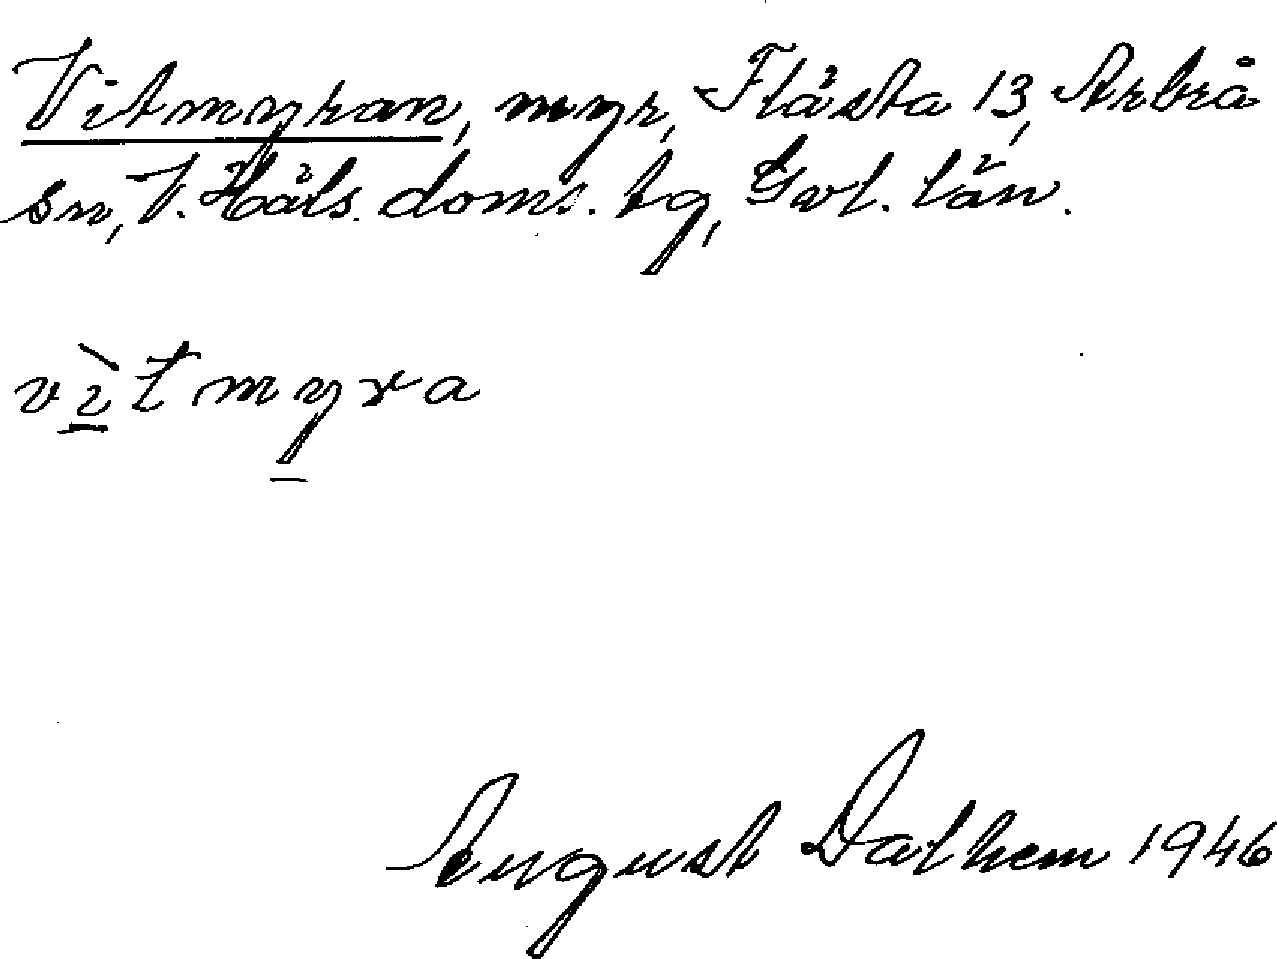 Vitmyran, myr, Flästa 13, Arbrå
sn, V. Häls. doms. tg, Gvl. län.
vìtmyra
August Dalhem 1946